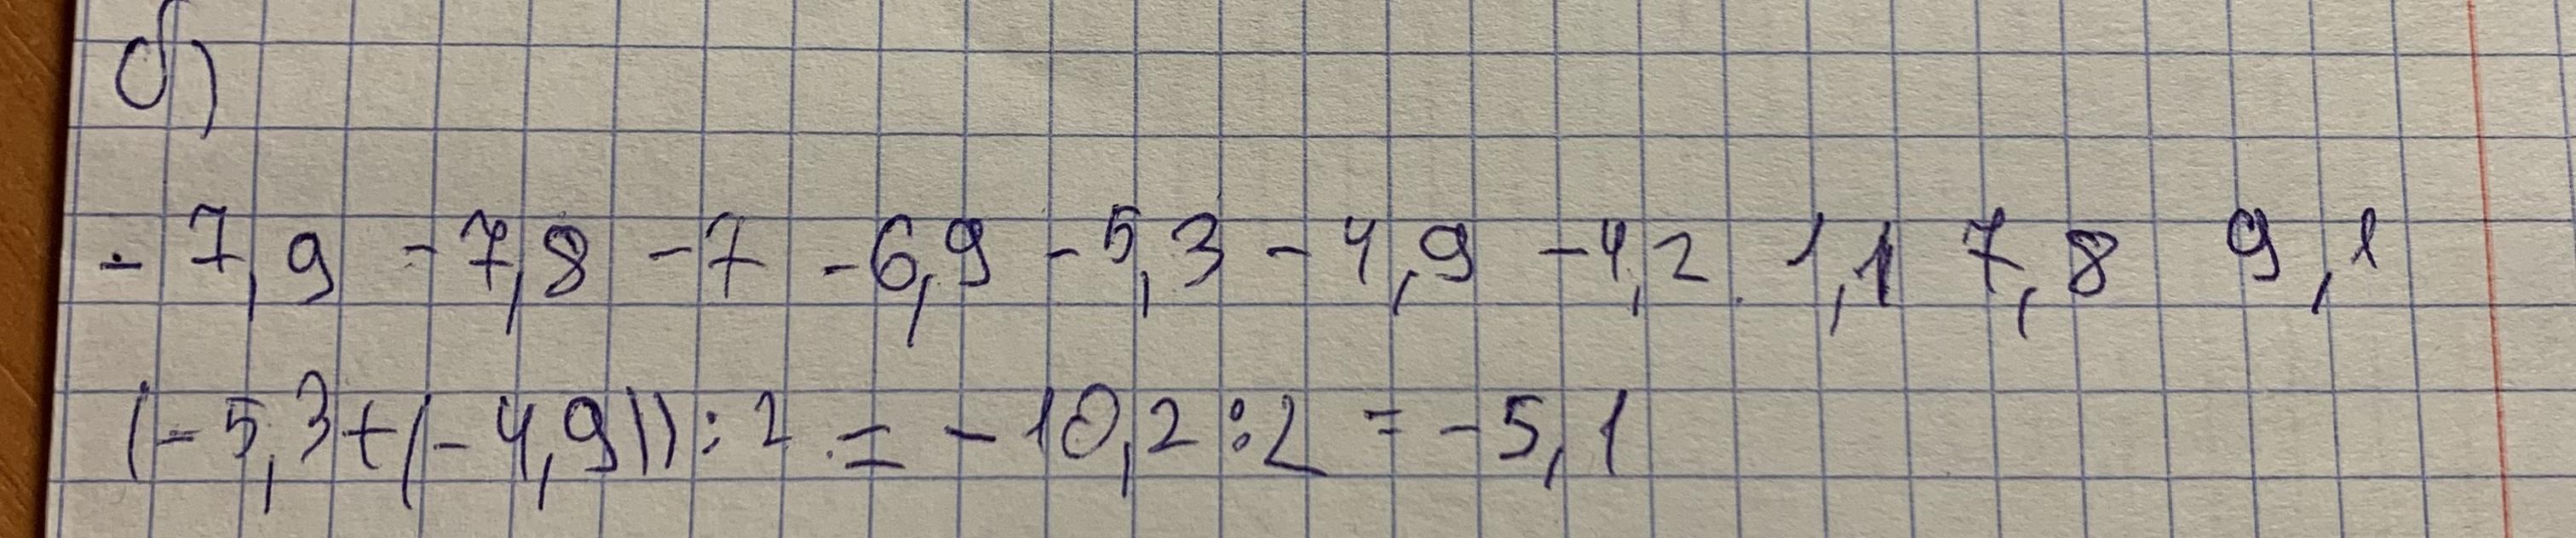 б)
-7,9 -7,8 -7 -6,9 -5,3 -4,9 -4,2 1,1 7,8 9,1
(-5,3+(-4,9)):2 = -10,2:2 = -5,1